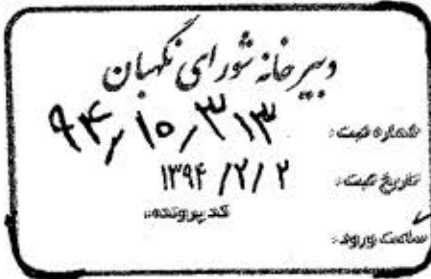 دبیرخانه شورای نگهبان
شماره ثبت: ۹۴/۱۰/۳۱۳
تاریخ ثبت: ۱۳۹۴/۲/۲
کد پرونده:
ساعت ورود: